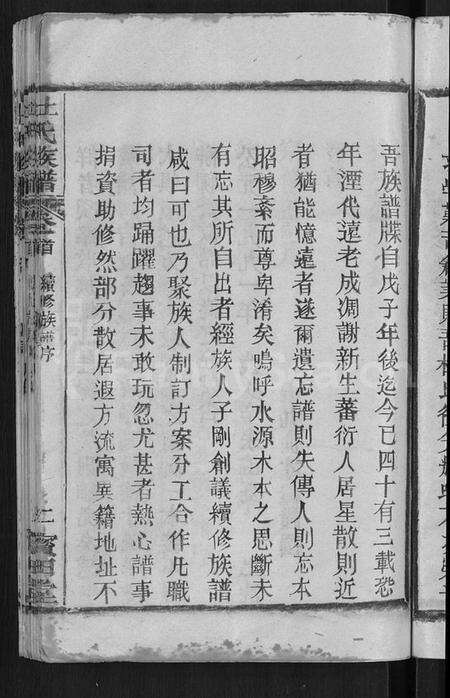 吾族譜牒自戊子年後迄今已四十有三載恐
年湮代遠老成凋謝新生蕃衍人居星散則近
者猶能憶遠者遂爾遺忘譜則失傳人則忘本
昭穆紊而尊卑淆矣嗚呼水源木本之思斷未
有忘其所自出者經族人子剛創議續修族譜
咸曰可也乃聚族人制訂方案分工合作凡職
司者均踊躍趨事未敢玩忽尤甚者熱心譜事
捐資助修然部分散居遐方流寓異籍地址不
氏族譜 續修族譜序